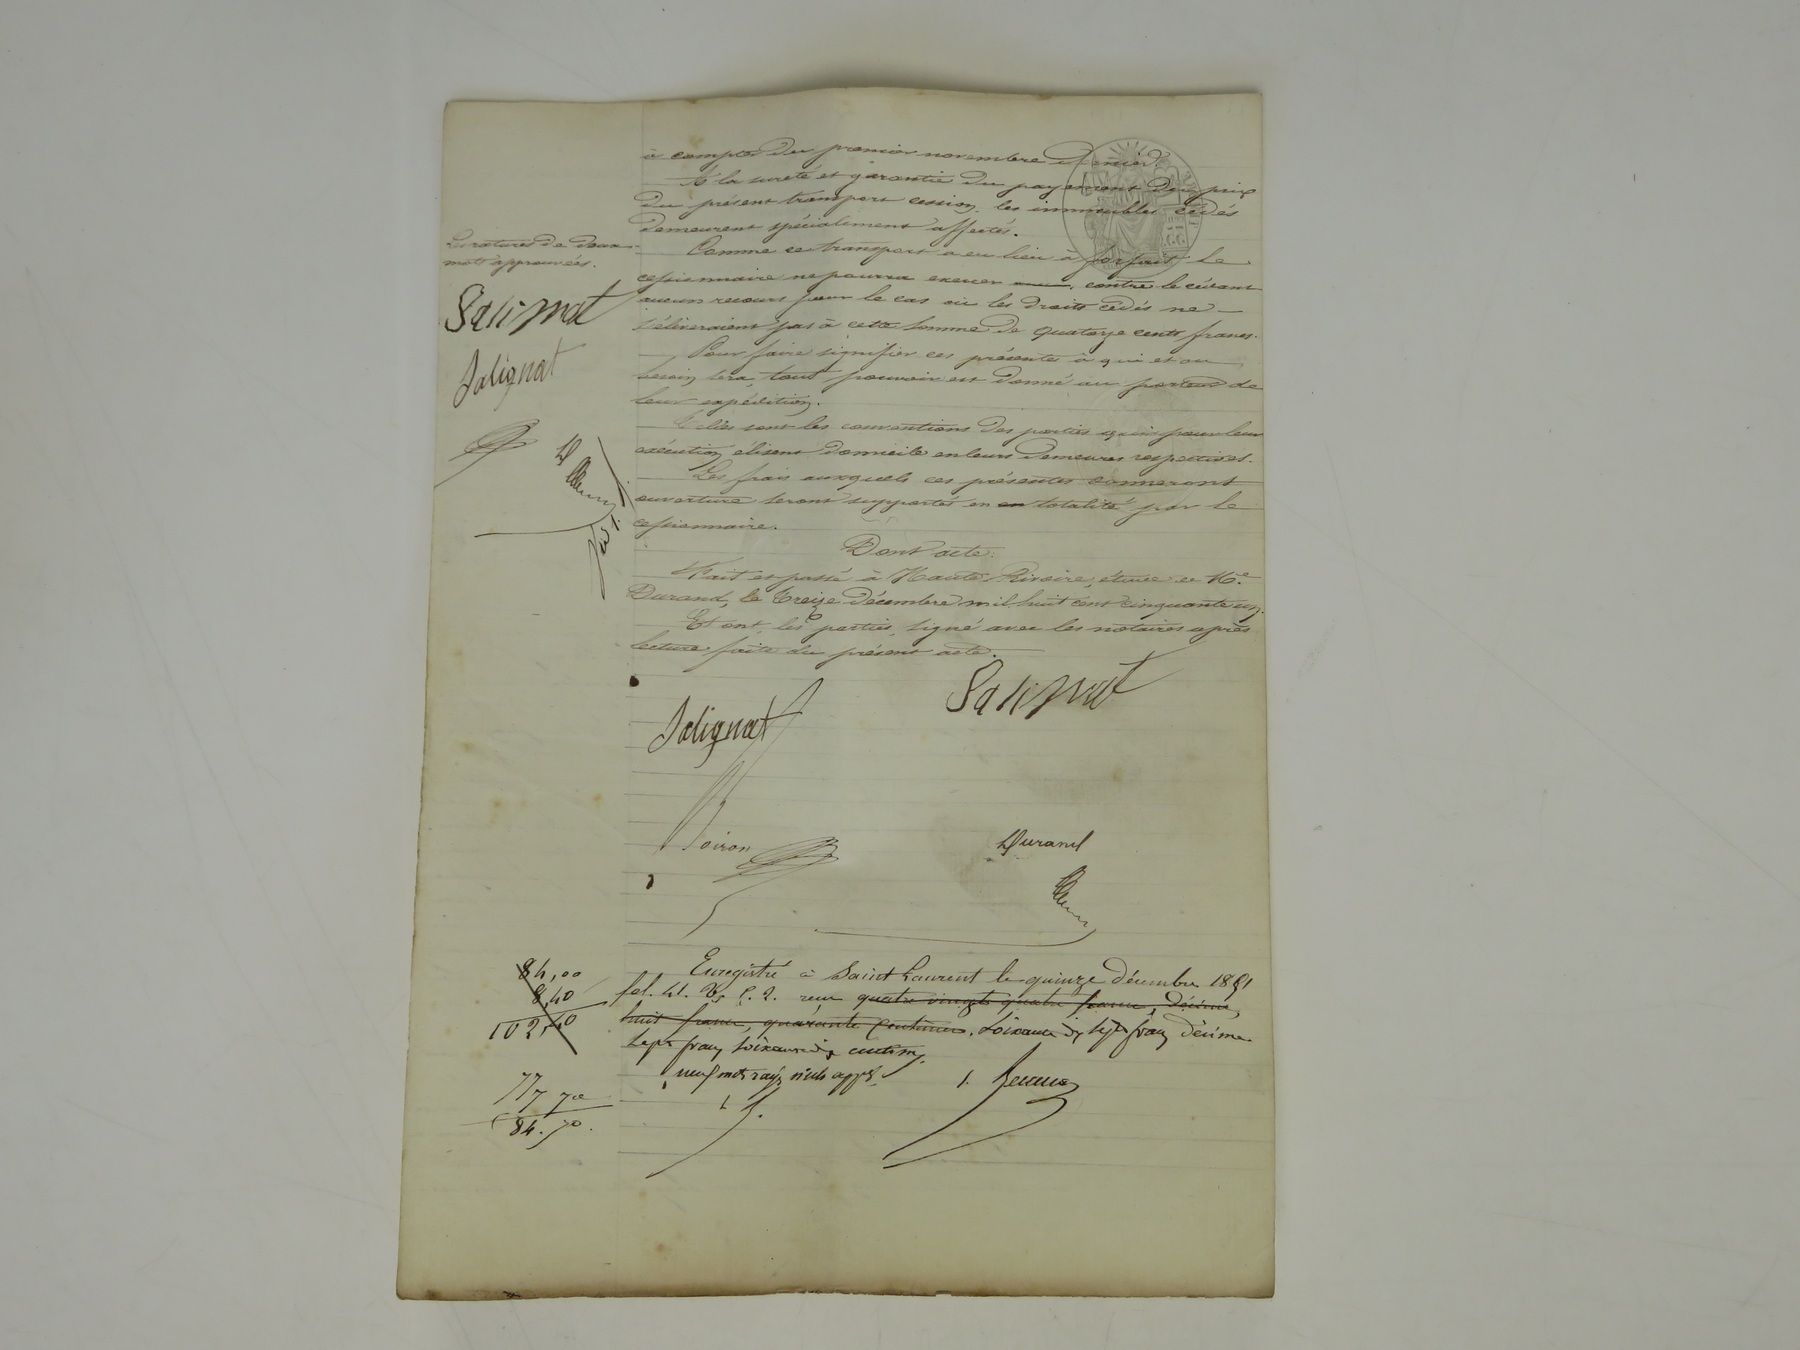 à compter du premier novembre dernier.
A la sureté et garantie du payement du prix
du présent transport cession, les immeubles cédés
demeurent spécialement affectés.
Comme ce transport a eu lieu à forfait le
cessionnaire ne pourra exercer contre le cédant
aucun recours pour le cas où les droits cédés ne
s'éléveraient pas à cette somme de quatorze cents francs.
Pour faire signifier ces présentes à qui et où
besoin sera, tout pouvoir est donné au porteur de
leur expédition.
Telles sont les conventions des parties qui pour leur
exécution élisent domicile en leurs demeures respectives.
Les frais auxquels ces présentes donneront
ouverture seront supportés en en totalité par le
cessionnaire.
Dont acte.
Fait et passé à Haute Rivoire, étude de Me
Durand, le treize décembre mil huit cent cinquante un.
Et ont, les parties, signé avec les notaires après
lecture faite du présent acte.
Les ratures de deux
mots approuvées.
Salignat
Salignat
Salignat
Salignat
Voiron
Durand
Enregistré à Saint Laurent le quinze décembre 1851
fol. 41. Vo C. 2. reçu quatre vingt quatre francs, décime
huit francs, quarante centimes. Soixante dix sept francs décime
sept francs soixante dix centimes.
neuf mots rayés nuls appé.
84,00
8,40
102,40
77 70
84.70.